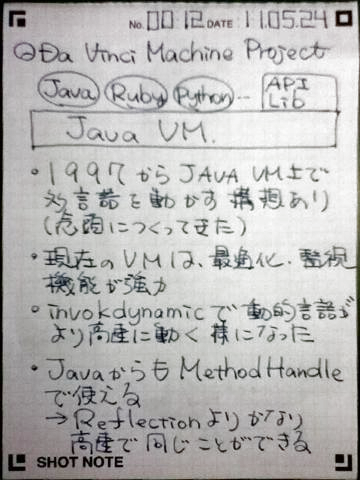 No. 0012 DATE 11.05.24
Da Vinci Machine Project
Java Ruby Python ... API
Lib
Java VM.
・1997からJAVA VM上で
多言語を動かす構想あり
(念頭につくってきた)
・現在のVMは、最適化、監視
機能が強力
・invokdynamicで動的言語が
より高速に動く様になった
・JavaからもMethodHandle
で使える
→Reflectionよりかなり
高速で同じことができる
SHOT NOTE